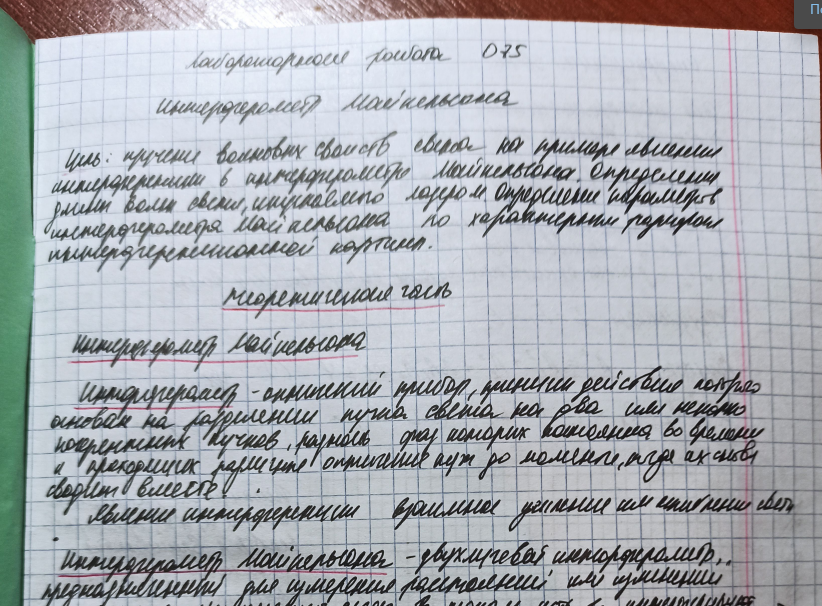 П
Лабораторная работа 075
Интерферометр Майкельсона
Цель: изучение волновых свойств света на примере явления
интерференции в интерферометре Майкельсона. Определение
длины волны света, излучаемого лазером. Определение параметров
интерферометра Майкельсона по характерным размерам
интерференционной картины.
Теоретическая часть
Интерферометр Майкельсона
Интерферометр - оптический прибор, принцип действия которого
основан на разделении пучка света на два или несколько
когерентных пучков, разность фаз которых постоянна во времени
и проходящих различные оптические пути до момента, когда их снова
сводят вместе.
Явление интерференции взаимное усиление или ослабление света
Интерферометр Майкельсона - двухлучевой интерферометр,
предназначенный для измерения расстояний или изменений